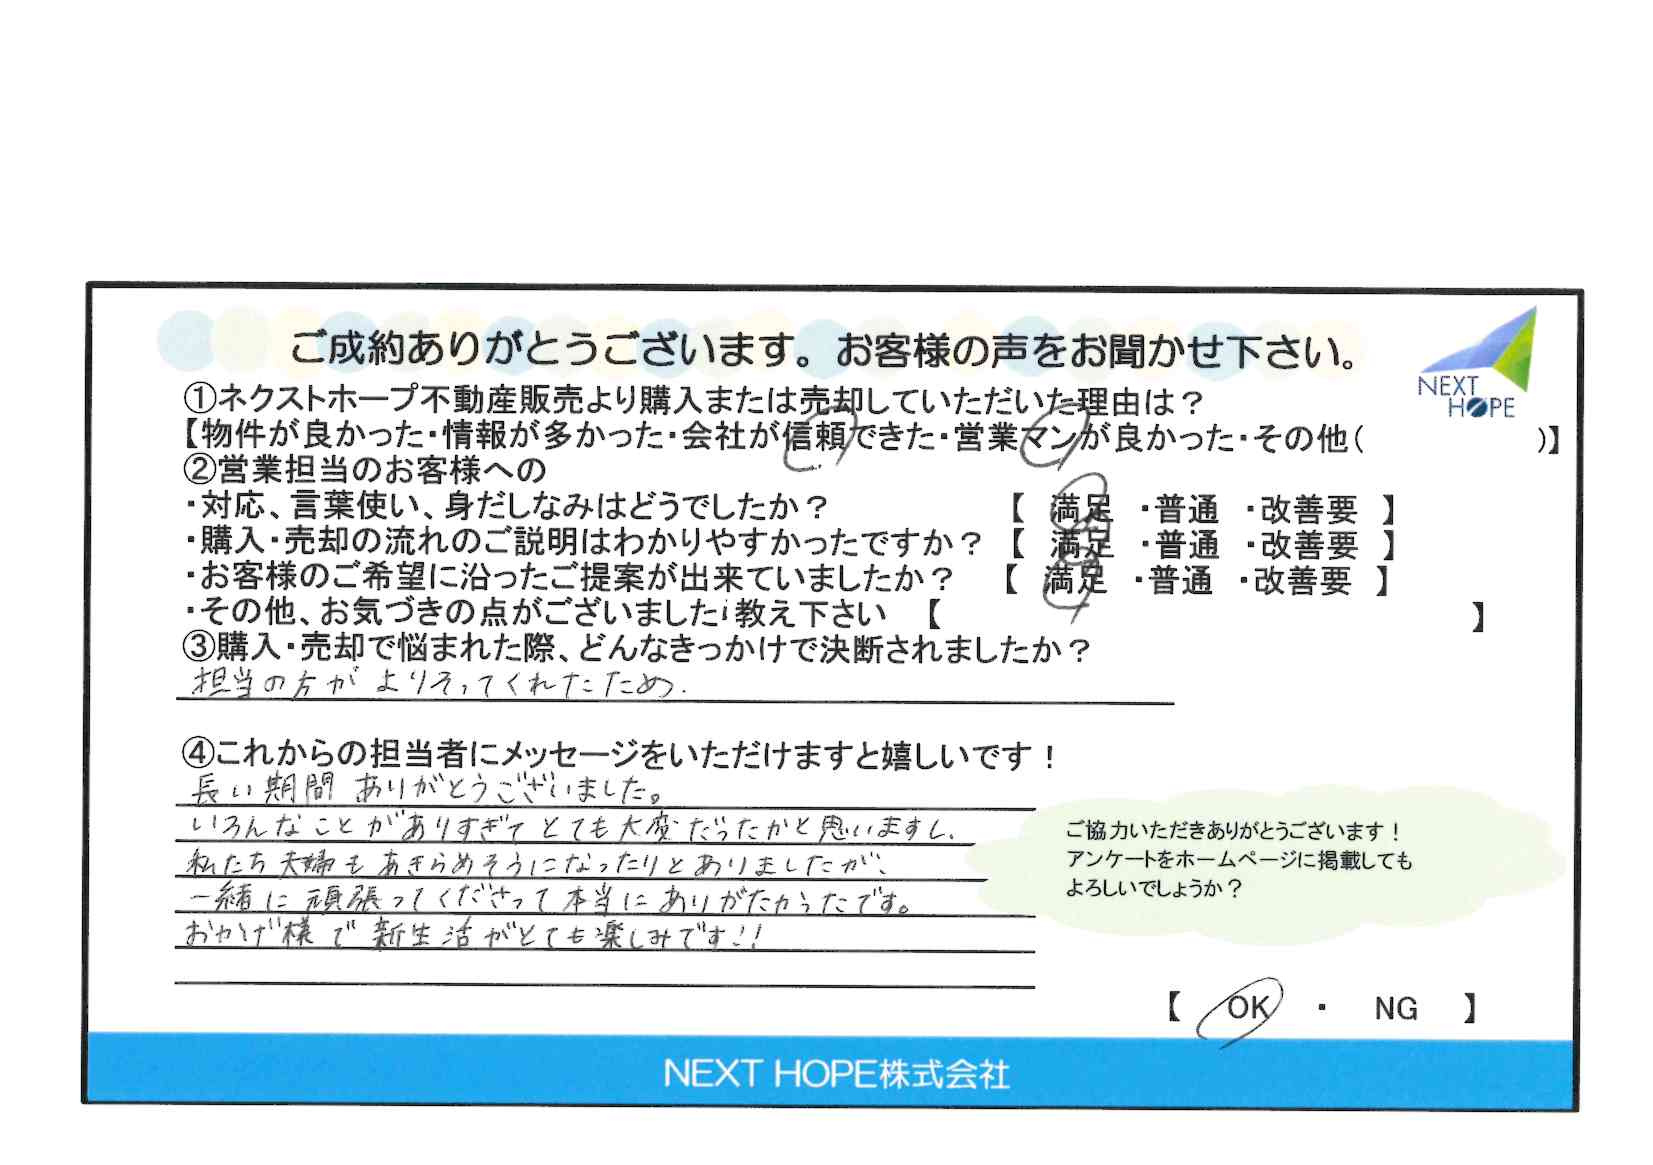 ご成約ありがとうございます。お客様の声をお聞かせ下さい。
NEXT
HOPE
①ネクストホープ不動産販売より購入または売却していただいた理由は？
【物件が良かった・情報が多かった・会社が信頼できた・営業マンが良かった・その他（　　　　　）】
②営業担当のお客様への
・対応、言葉使い、身だしなみはどうでしたか？　【　満足　・普通　・改善要　】
・購入・売却の流れのご説明はわかりやすかったですか？　【　満足　・普通　・改善要　】
・お客様のご希望に沿ったご提案が出来ていましたか？　【　満足　・普通　・改善要　】
・その他、お気づきの点がございました 教え下さい　【　　　　　　　　　　】
③購入・売却で悩まれた際、どんなきっかけで決断されましたか？
担当の方がよりそってくれたため.
④これからの担当者にメッセージをいただけますと嬉しいです！
長い期間 ありがとうございました。
いろんなことがありすぎてとても大変だったかと思いますし、
私たち夫婦もあきらめそうになったりとありましたが、
一緒に頑張ってくださって本当にありがたかったです。
おかげ様で新生活がとても楽しみです!!
ご協力いただきありがとうございます！
アンケートをホームページに掲載しても
よろしいでしょうか？
【　OK　・　NG　】
NEXT HOPE株式会社